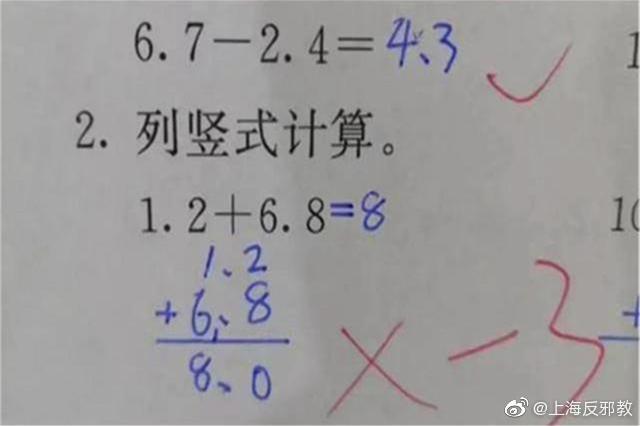 6.7－2.4＝4.3
1
2. 列竖式计算。
1.2＋6.8=8
10
1.2
+6.8
+
8.0
×－3
@上海反邪教